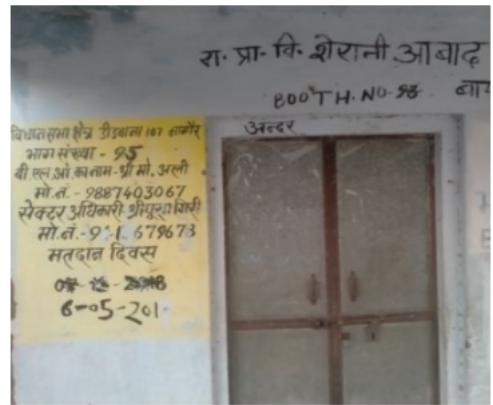 रा. प्रा. वि. शेरानी आबाद
BOOTH. NO. 95
अन्दर
विधानसभा क्षेत्र डीडवाना 107 नागौर
भाग संख्या - 95
बी.एल.ओ. का नाम - श्री मो. अली
मो.नं. - 9887403067
सेक्टर अधिकारी श्री पुरण गिरी
मो.नं. -
मतदान दिवस
6-05-201